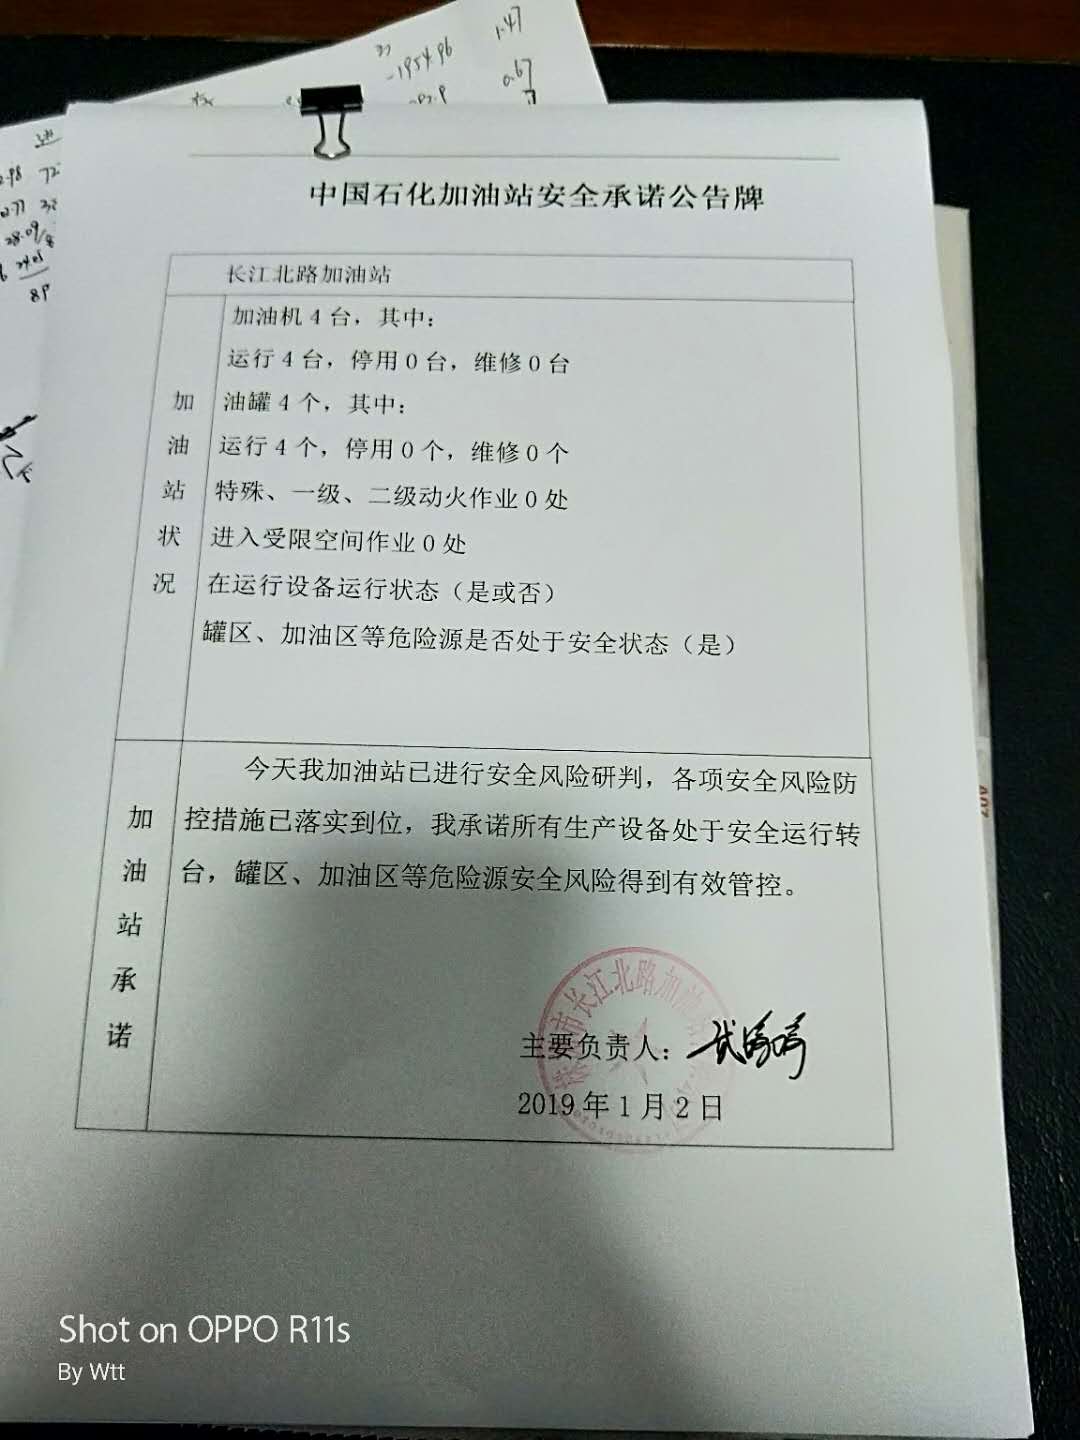 1.47
-1954.96
0.67
中国石化加油站安全承诺公告牌
长江北路加油站
加油站状况
加油机 4 台，其中：
运行 4 台，停用 0 台，维修 0 台
油罐 4 个，其中：
运行 4 个，停用 0 个，维修 0 个
特殊、一级、二级动火作业 0 处
进入受限空间作业 0 处
在运行设备运行状态（是或否）
罐区、加油区等危险源是否处于安全状态（是）
加油站承诺
今天我加油站已进行安全风险研判，各项安全风险防
控措施已落实到位，我承诺所有生产设备处于安全运行转
台，罐区、加油区等危险源安全风险得到有效管控。
市长江北路加油站
主要负责人：
2019 年 1 月 2 日
Shot on OPPO R11s
By Wtt